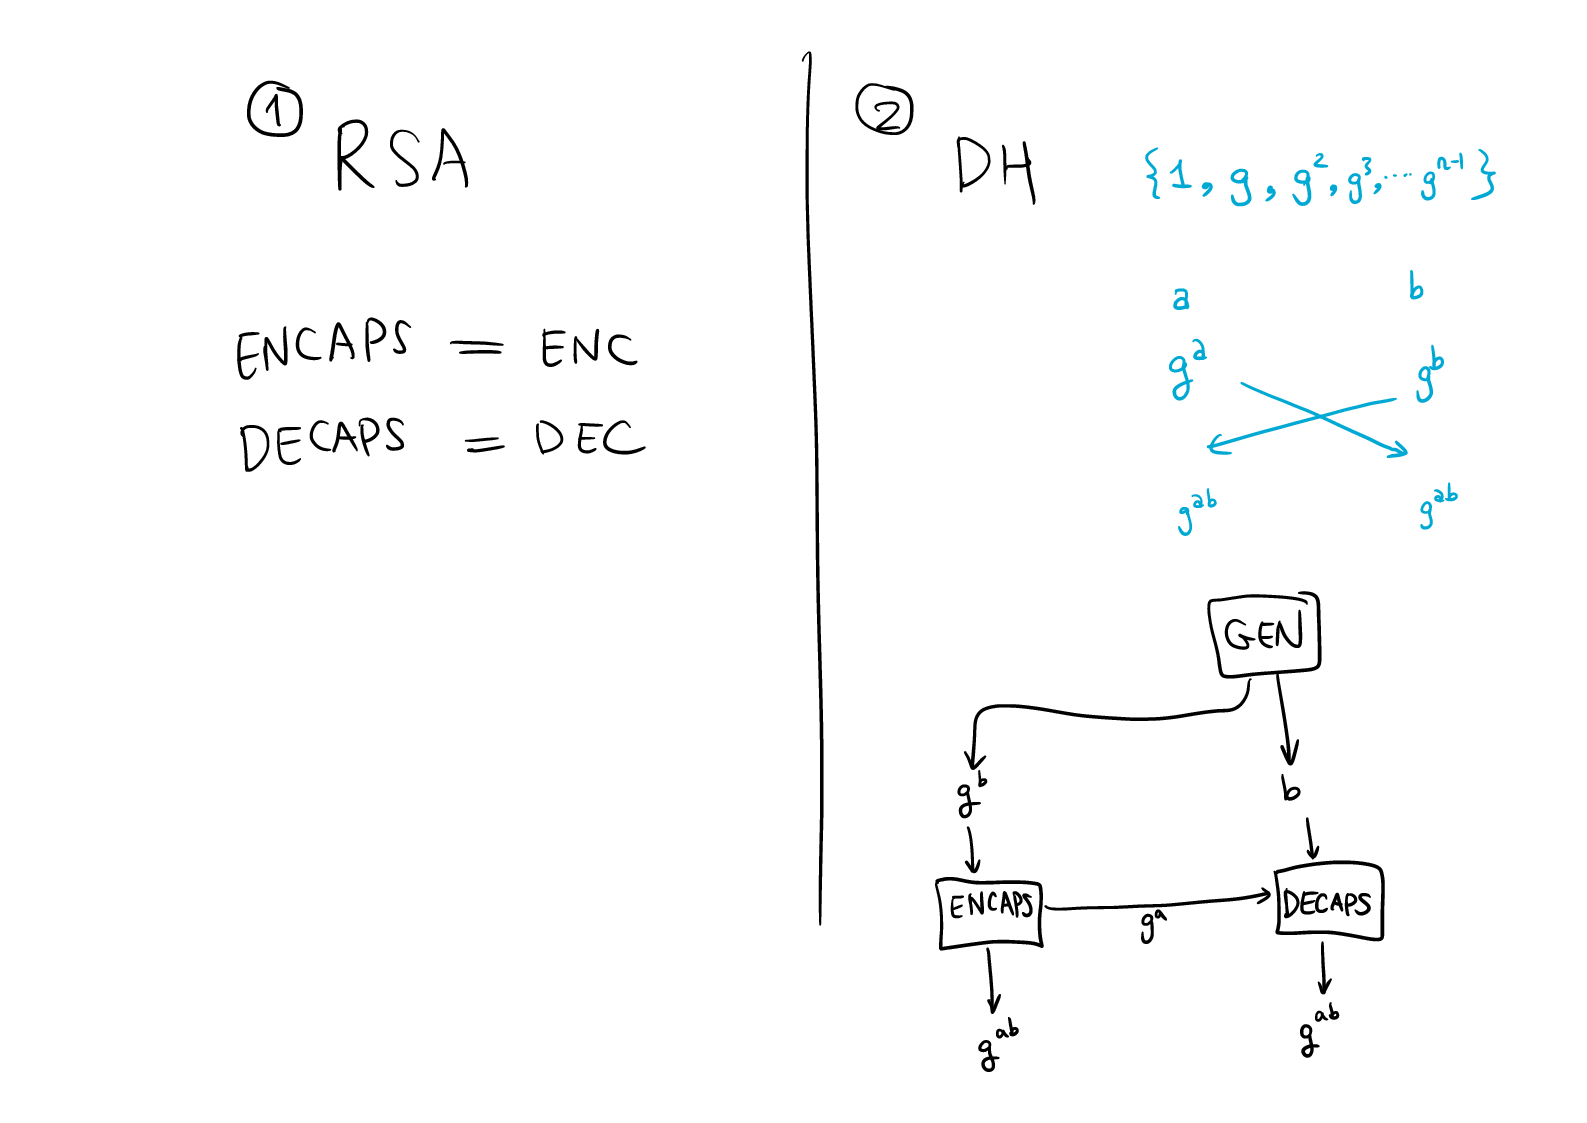 ①
RSA
ENCAPS = ENC
DECAPS = DEC
②
DH {1, g, g², g³, ... gⁿ⁻¹}
a b
gᵃ gᵇ
gᵃᵇ gᵃᵇ
GEN
gᵇ b
ENCAPS gᵃ DECAPS
gᵃᵇ gᵃᵇ